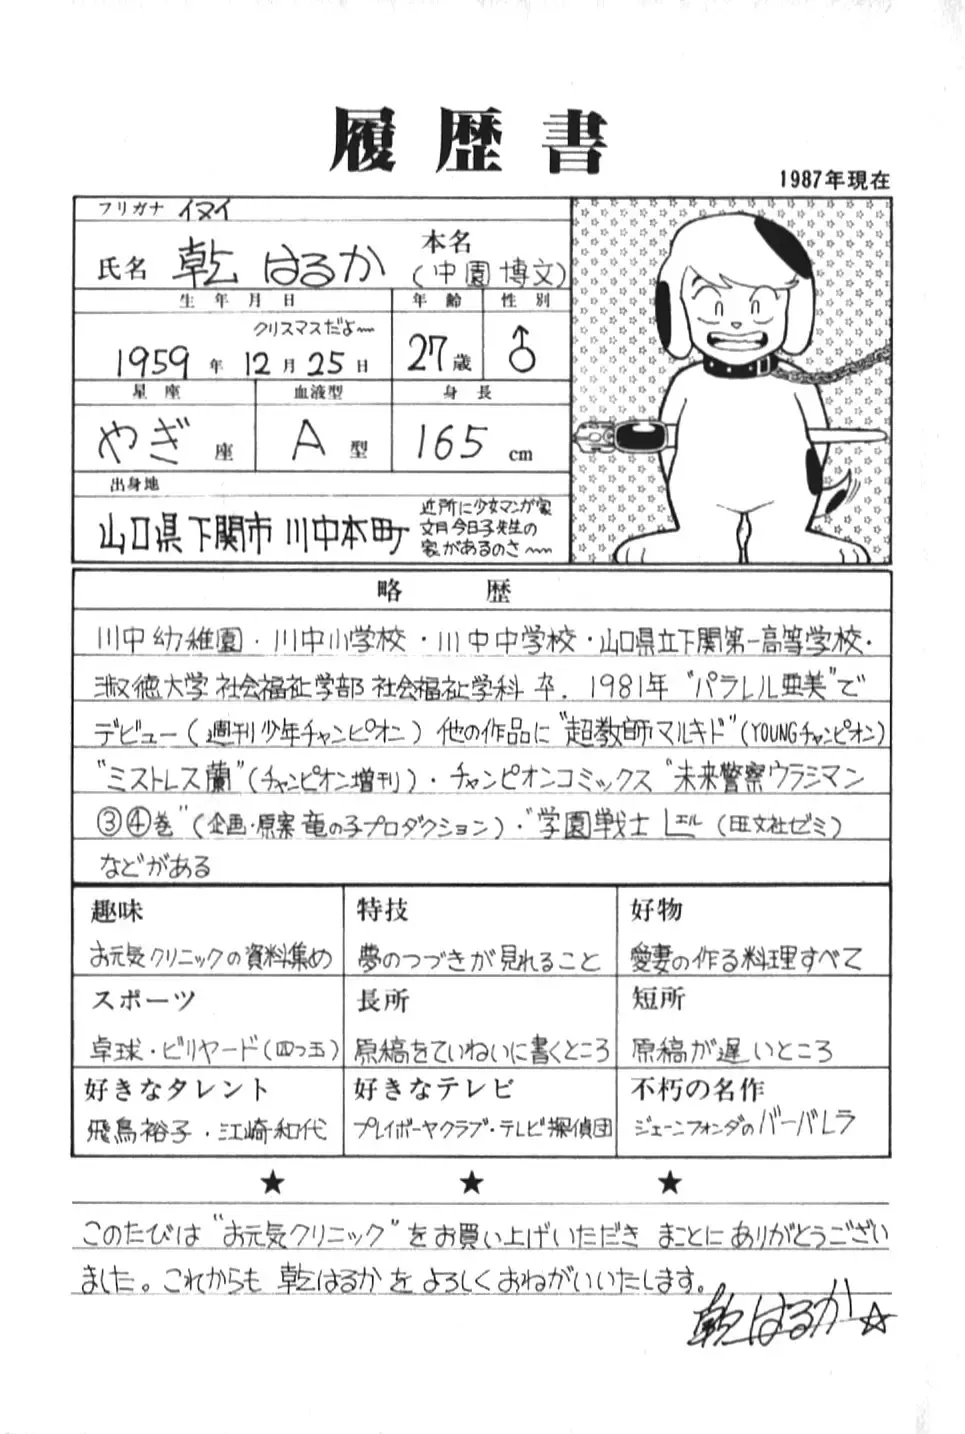 履歴書
1987年現在
フリガナ イヌイ
氏名 乾 はるか 本名 (中園 博文)
生年月日 年齢 性別
クリスマスだよ〜
1959年 12月 25日 27歳 ♂
星座 血液型 身長
やぎ座 A型 165cm
出身地
山口県下関市川中本町
近所に少女マンガ家
文月今日子先生の
家があるのさ〜
略歴
川中幼稚園・川中小学校・川中中学校・山口県立下関第一高等学校・
淑徳大学社会福祉学部社会福祉学科 卒. 1981年 “パラレル亜美”で
デビュー(週刊少年チャンピオン) 他の作品に“超教師マルキド”(YOUNGチャンピオン)
“ミストレス蘭”(チャンピオン増刊)・チャンピオンコミックス“未来警察ウラシマン
③④巻”(企画・原案 竜の子プロダクション)・“学園戦士 L エル (旺文社ゼミ)
などがある
趣味 特技 好物
お元気クリニックの資料集め 夢のつづきが見れること 愛妻の作る料理すべて
スポーツ 長所 短所
卓球・ビリヤード(四つ玉) 原稿をていねいに書くところ 原稿が遅いところ
好きなタレント 好きなテレビ 不朽の名作
飛鳥裕子・江崎和代 プレイボーヤクラブ・テレビ探偵団 ジェーンフォンダのバーバレラ
★ ★ ★
このたびは“お元気クリニック”をお買い上げいただき まことにありがとうござい
ました。これからも 乾はるかを よろしくおねがいいたします。
乾はるか☆